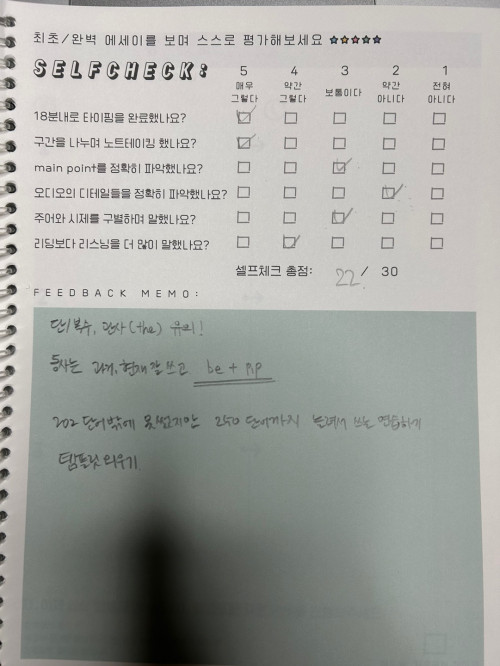 최초/완벽 에세이를 보며 스스로 평가해보세요 ☆☆☆☆☆
SELFCHECK:
5 4 3 2 1
매우 그렇다 약간 그렇다 보통이다 약간 아니다 전혀 아니다
18분내로 타이핑을 완료했나요?
구간을 나누며 노트테이킹 했나요?
main point를 정확히 파악했나요?
오디오의 디테일들을 정확히 파악했나요?
주어와 시제를 구별하며 말했나요?
리딩보다 리스닝을 더 많이 말했나요?
셀프체크 총점: 22 / 30
FEEDBACK MEMO:
단/복수, 관사(the) 유의!
동사는 과거, 현재 잘 쓰고 be + pp
202 단어밖에 못썼지만 250 단어까지 늘려서 쓰는 연습하기
템플릿 외우기